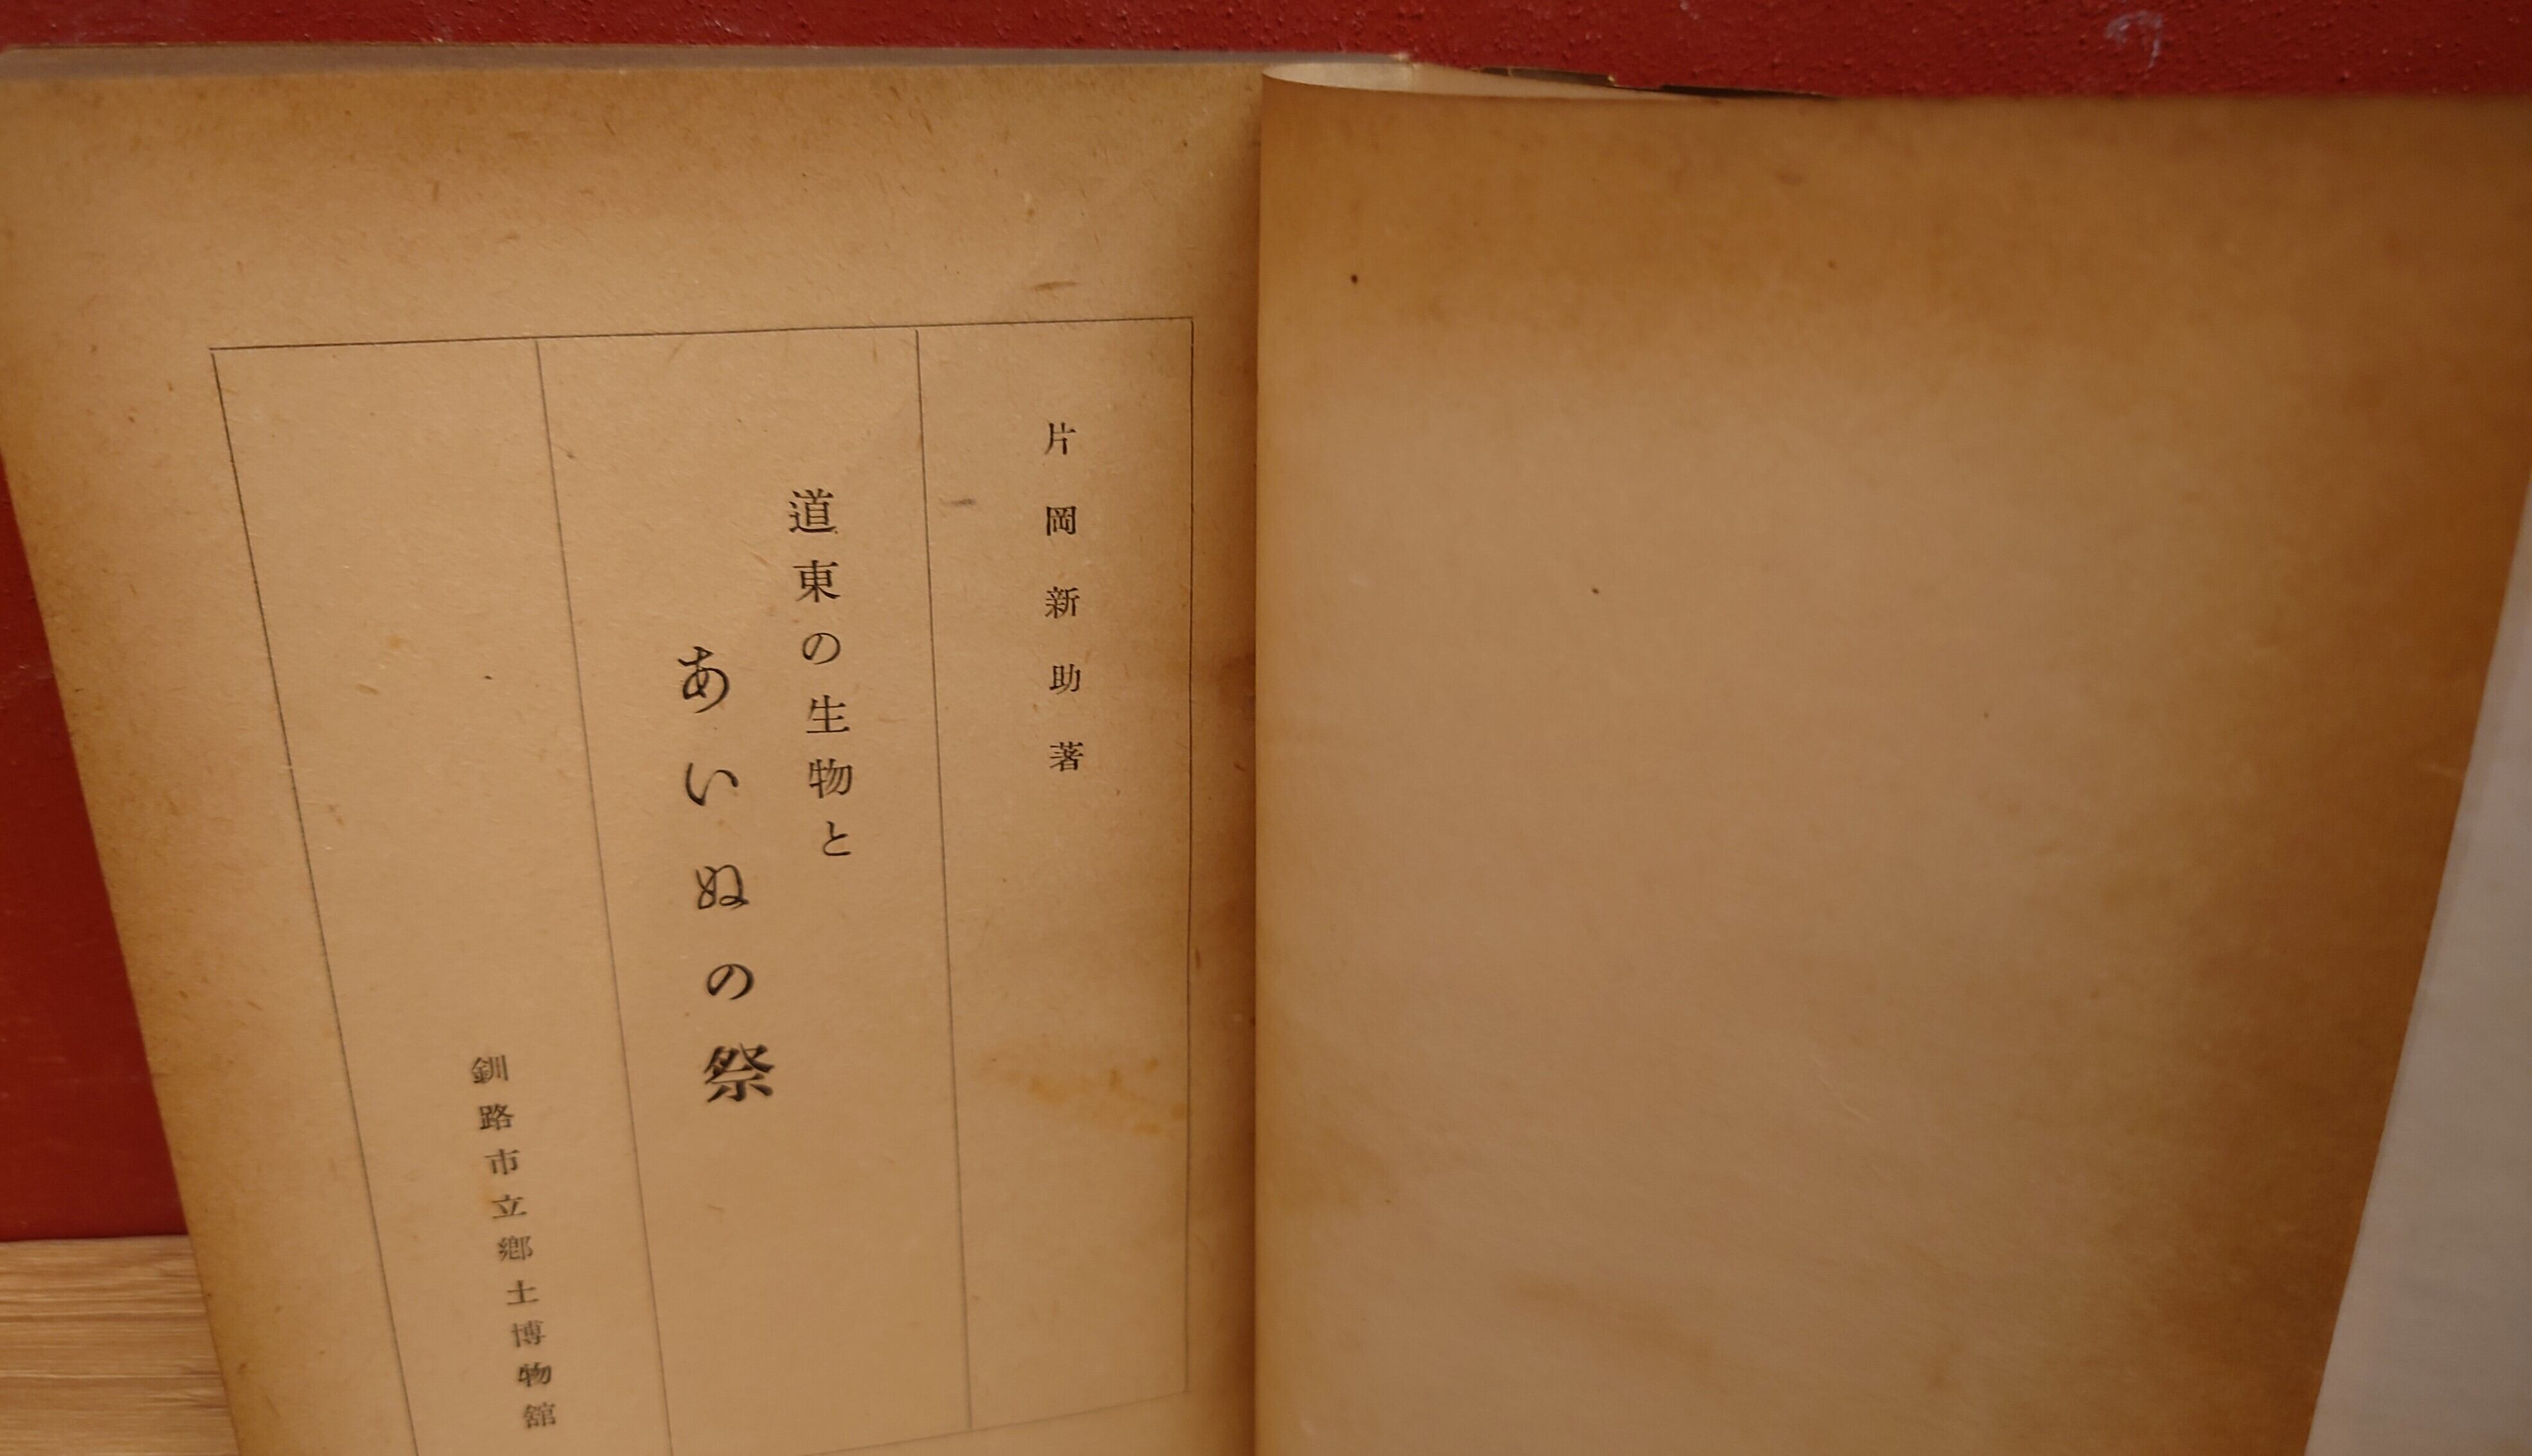 片岡新助著
道東の生物と
あいぬの祭
釧路市立郷土博物舘